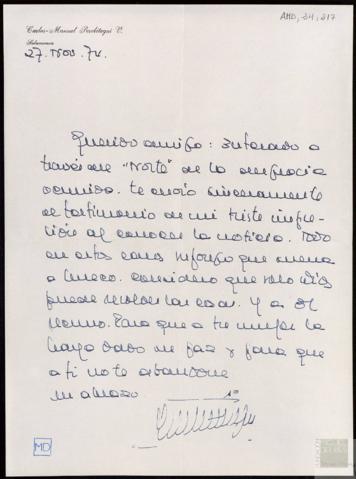 AMD, 34, 217
Carlos-Manuel Perlétegui V.
Salamanca
27. Nov. 74.
Querido amigo: Enterado a
través de "Norte" de la desgracia
ocurrida. te envío sinceramente
el testimonio de mi triste impre-
sión al conocer la noticia. Todo
en estos casos supongo que suena
a hueco. Considero que solo Dios
puede resolver las cosas. Y a Él
recurro. Para que a tu mujer la
haya dado su paz y para que
a ti no te abandone
Un abrazo
MD